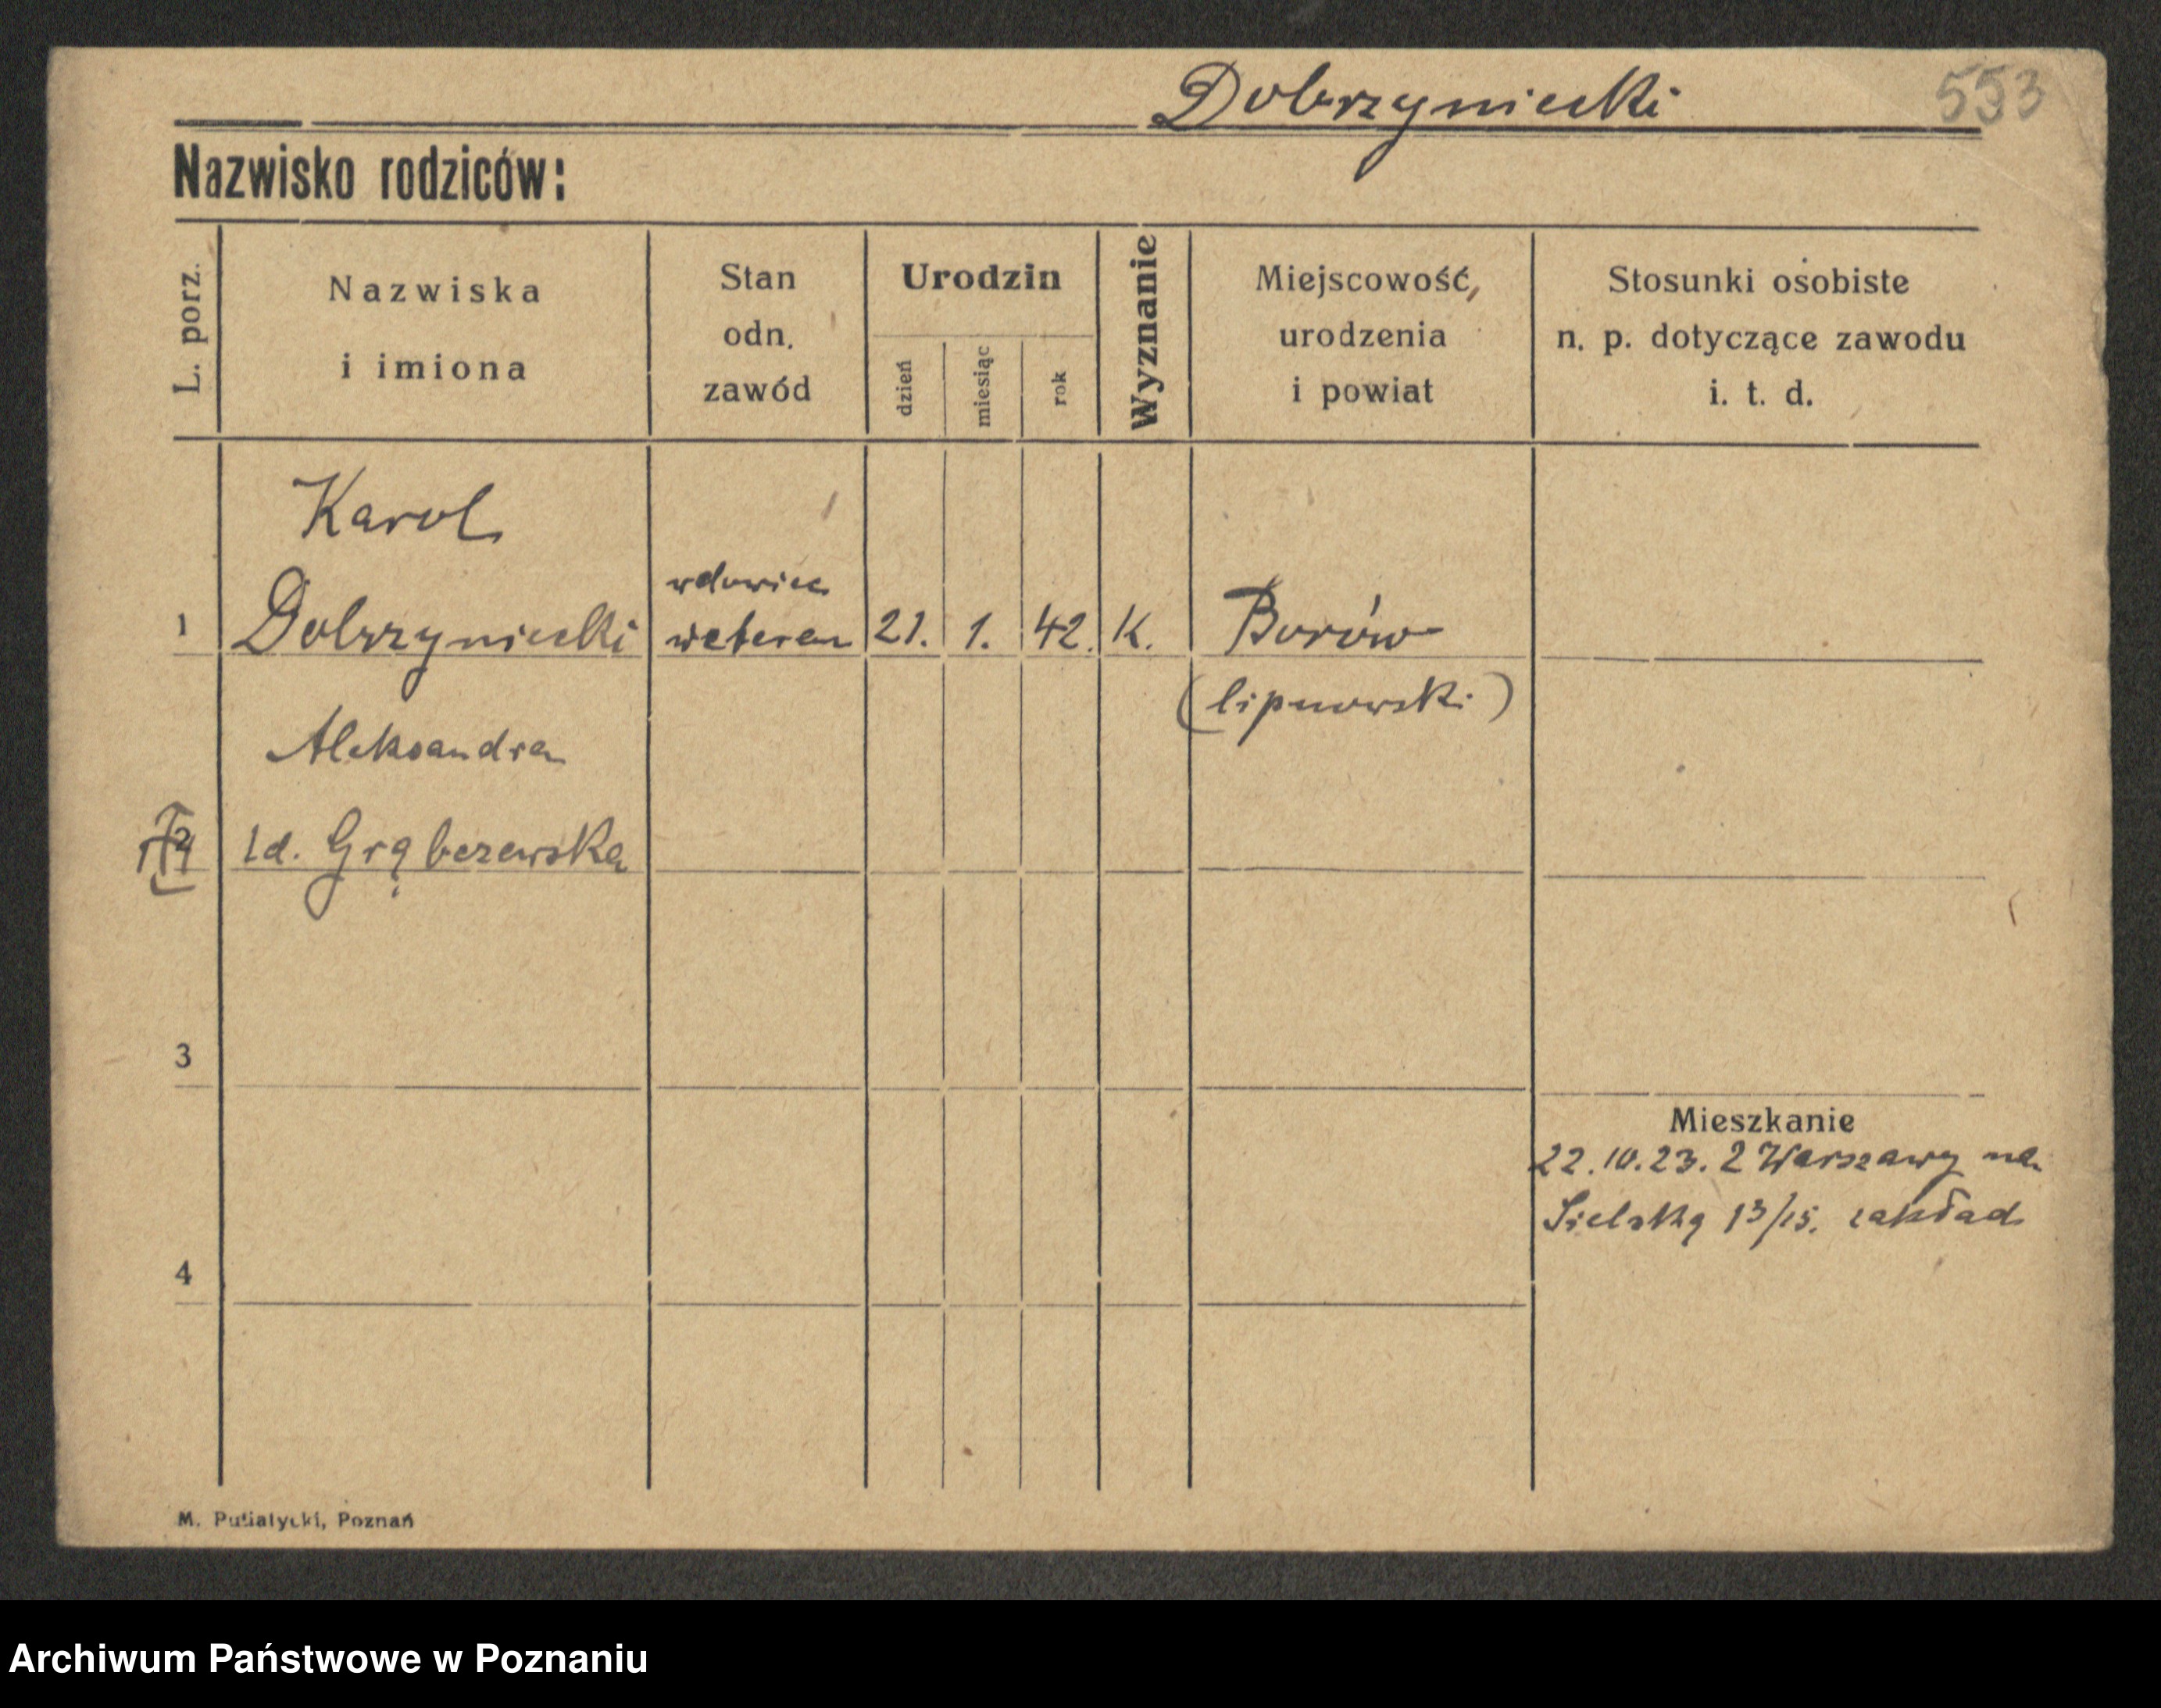 Dobrzyniecki
553
Nazwisko rodziców:
L. porz.
Nazwiska
i imiona
Stan
odn.
zawód
Urodzin
dzień
miesiąc
rok
Wyznanie
Miejscowość,
urodzenia
i powiat
Stosunki osobiste
n. p. dotyczące zawodu
i. t. d.
Karol
wdowiec
1 Dobrzyniecki weteran 21. 1. 42. K. Borów
(lipnowski)
Aleksandra
2 zd. Grąbczewska
3
Mieszkanie
22.10.23. z Warszawy na
Sielską 13/15. zakład
4
M. Putiatycki, Poznań
Archiwum Państwowe w Poznaniu